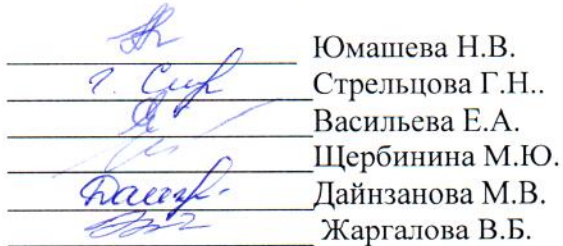 Юмашева Н.В.
Стрельцова Г.Н..
Васильева Е.А.
Щербинина М.Ю.
Дайнзанова М.В.
Жаргалова В.Б.